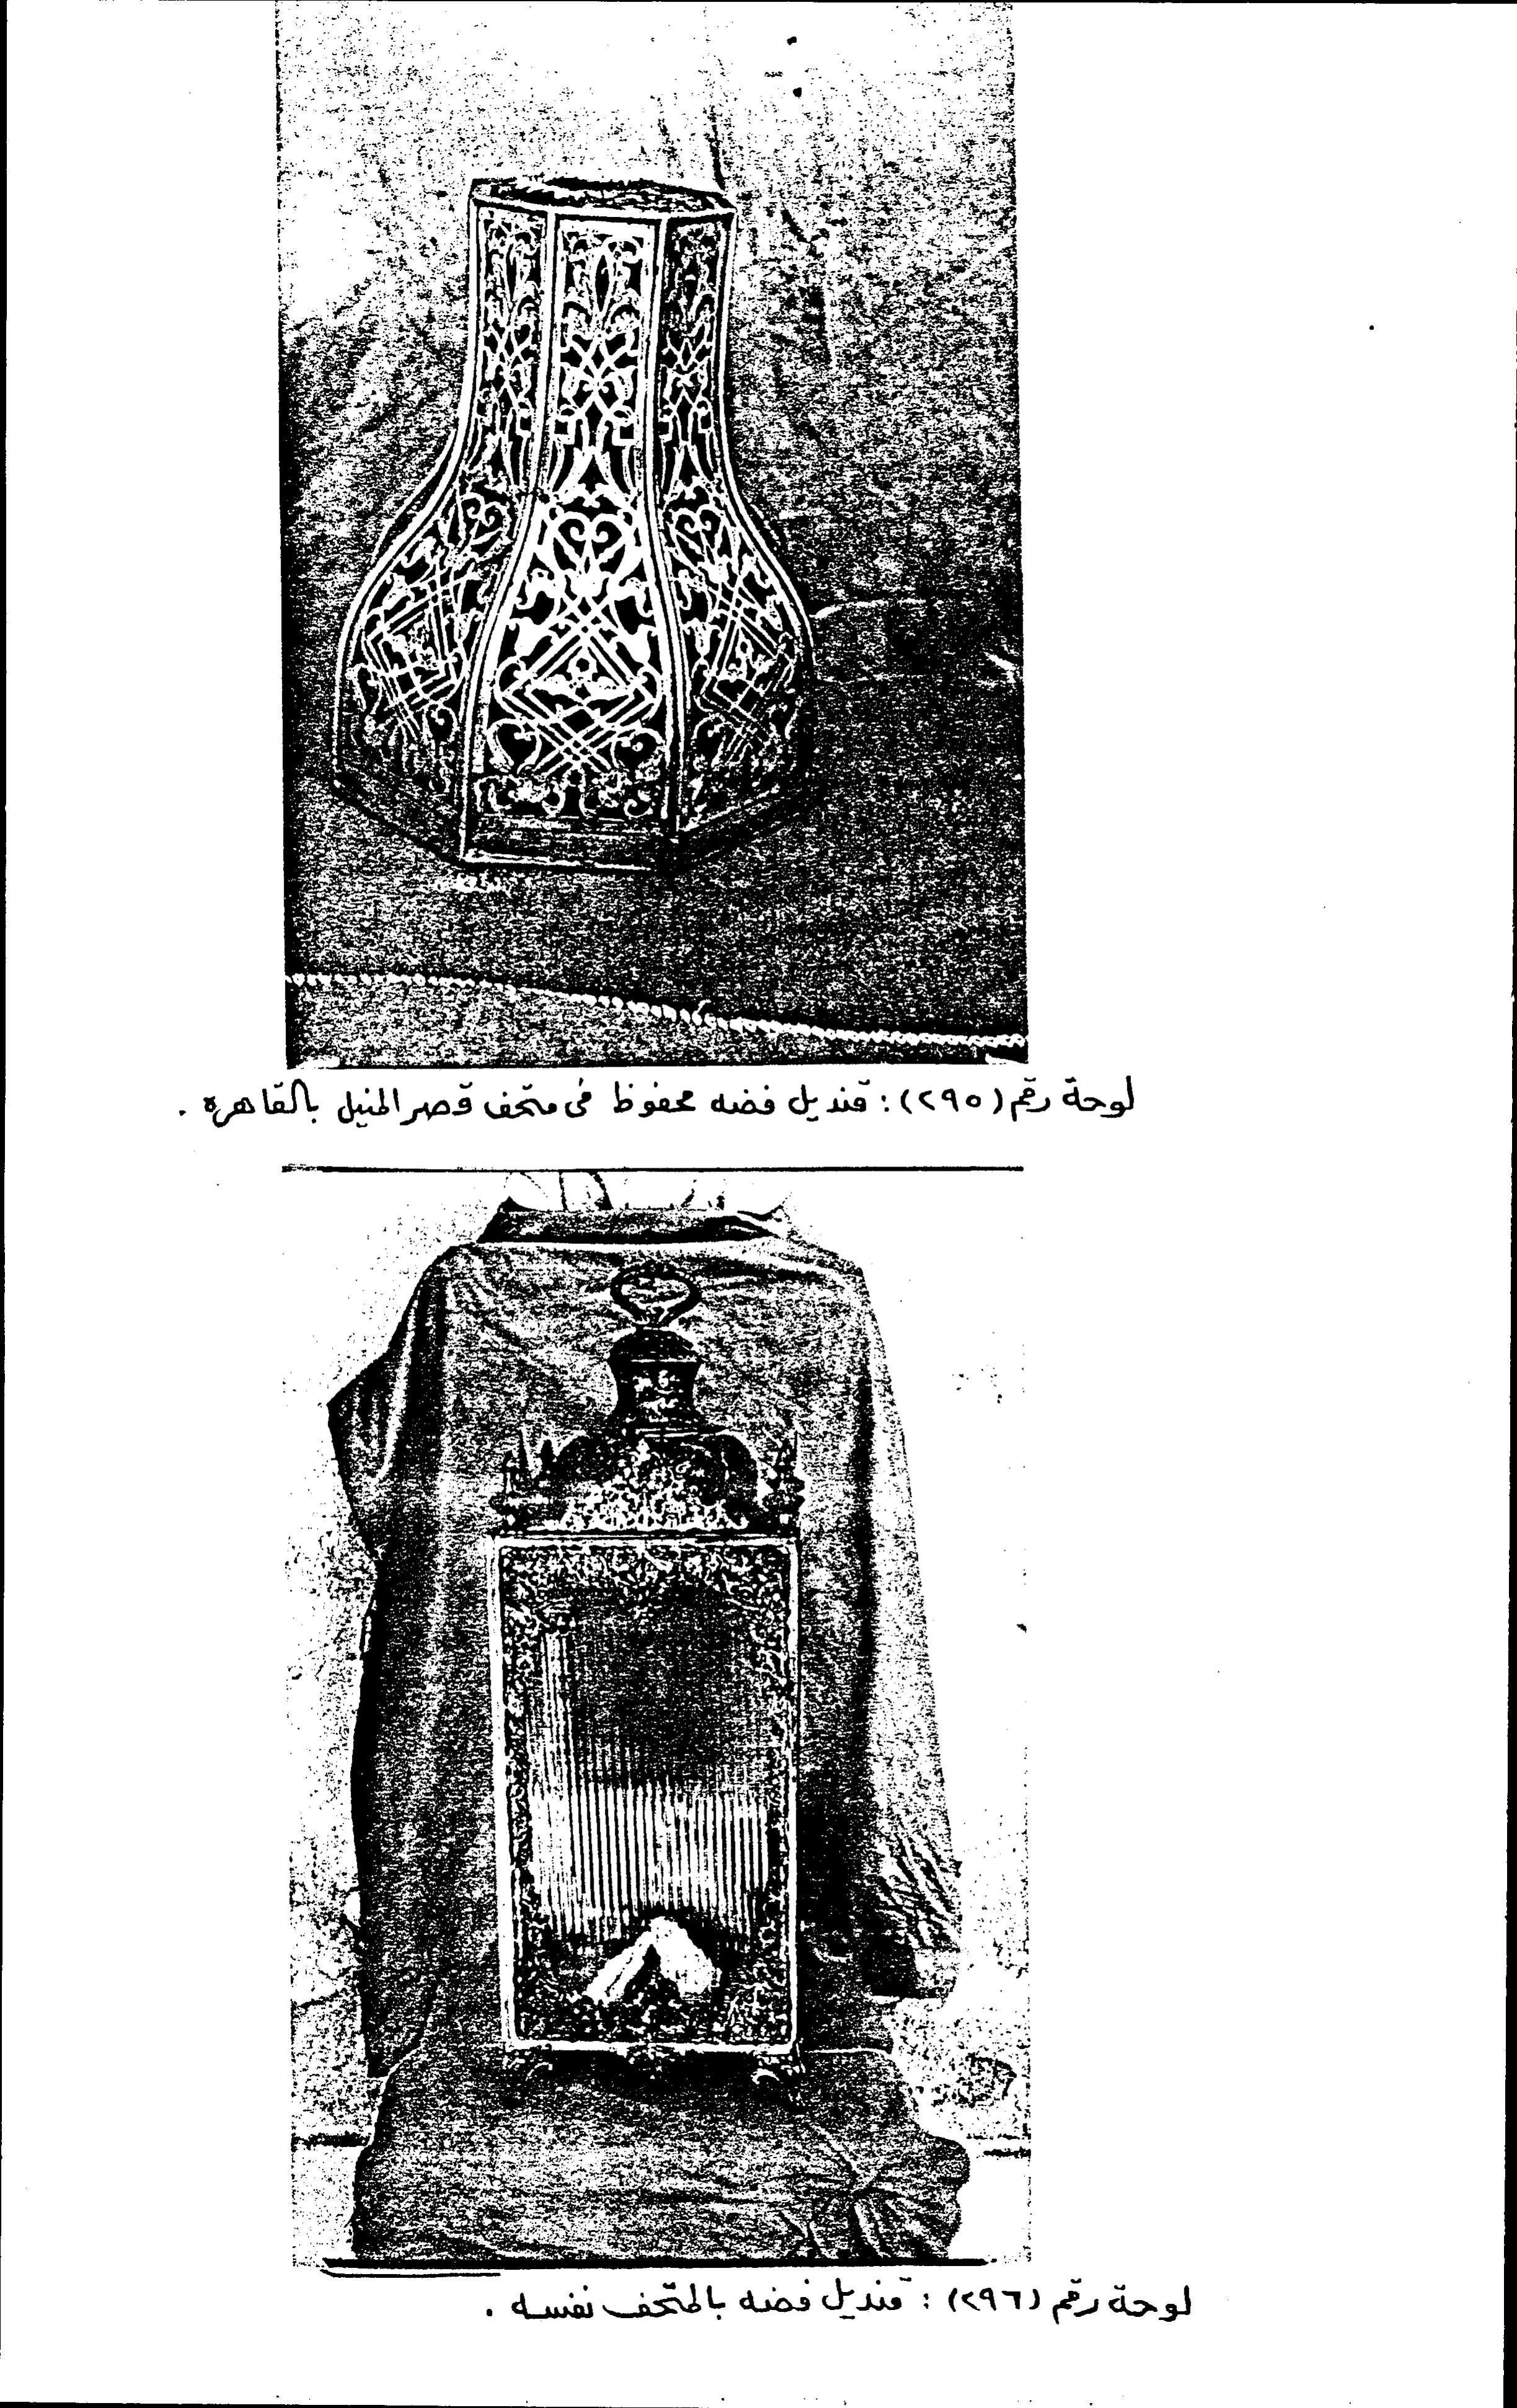 لوحة رقم (٢٩٥) : قنديل فضه محفوظ فى متحف قصر المنيل بالقاهره .
لوحة رقم (٢٩٦) : قنديل فضه بالمتحف نفسه .